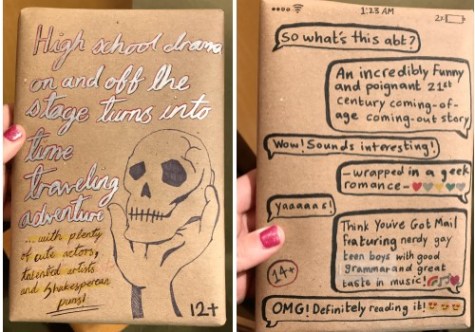 High school drama
on and off the
stage turns into
time
traveling
adventure
...with plenty
of cute actors,
talented artists
and Shakesperean
puns!
12+
1:23 AM
2%
So what's this abt?
An incredibly funny
and poignant 21st
century coming-of-
age coming-out story
Wow! Sounds interesting!
-wrapped in a geek
romance-
yaaaaas!
Think You've Got Mail
featuring nerdy gay
teen boys with good
grammar and great
taste in music!
14+
OMG! Definitely reading it!